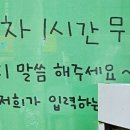 차 1시간 무
말씀 해주세요~
저희가 입력하는